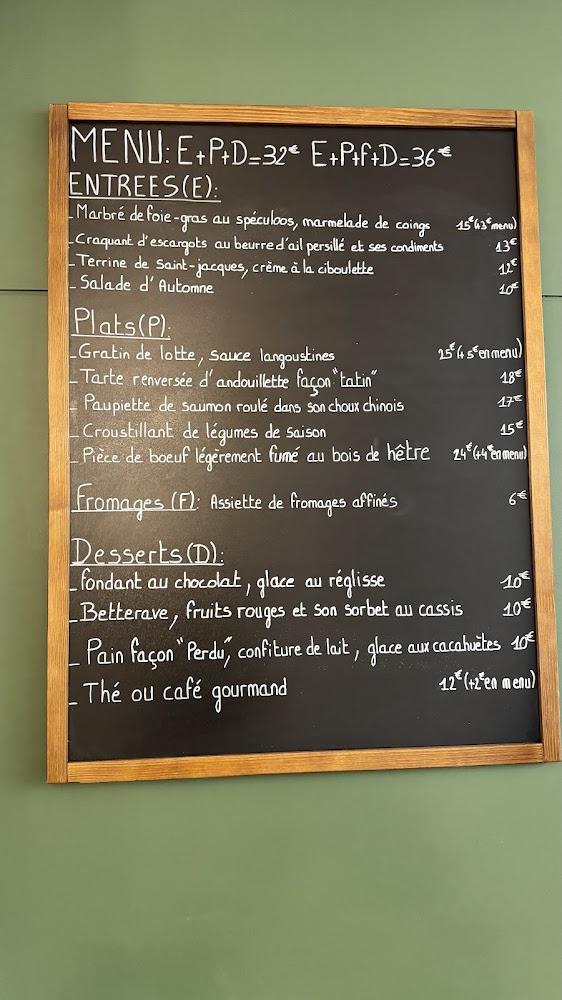 MENU: E+P+D=32€ E+P+F+D=36€
ENTREES(E):
- Marbré de foie-gras au spéculoos, marmelade de coings 15€(+3€menu)
- Craquant d'escargots au beurre d'ail persillé et ses condiments 13€
- Terrine de Saint-jacques, crème à la ciboulette 12€
- Salade d'Automne 10€
Plats(P):
- Gratin de lotte, sauce langoustines 25€(+5€en menu)
- Tarte renversée d'andouillette façon "tatin" 18€
- Paupiette de saumon roulé dans son choux chinois 17€
- Croustillant de légumes de saison 15€
- Pièce de boeuf légèrement fumé au bois de hêtre 24€(+4€en menu)
Fromages (F): Assiette de fromages affinés 6€
Desserts(D):
- fondant au chocolat, glace au réglisse 10€
- Betterave, fruits rouges et son sorbet au cassis 10€
- Pain façon "Perdu", confiture de lait, glace aux cacahuètes 10€
- Thé ou café gourmand 12€(+2€en menu)